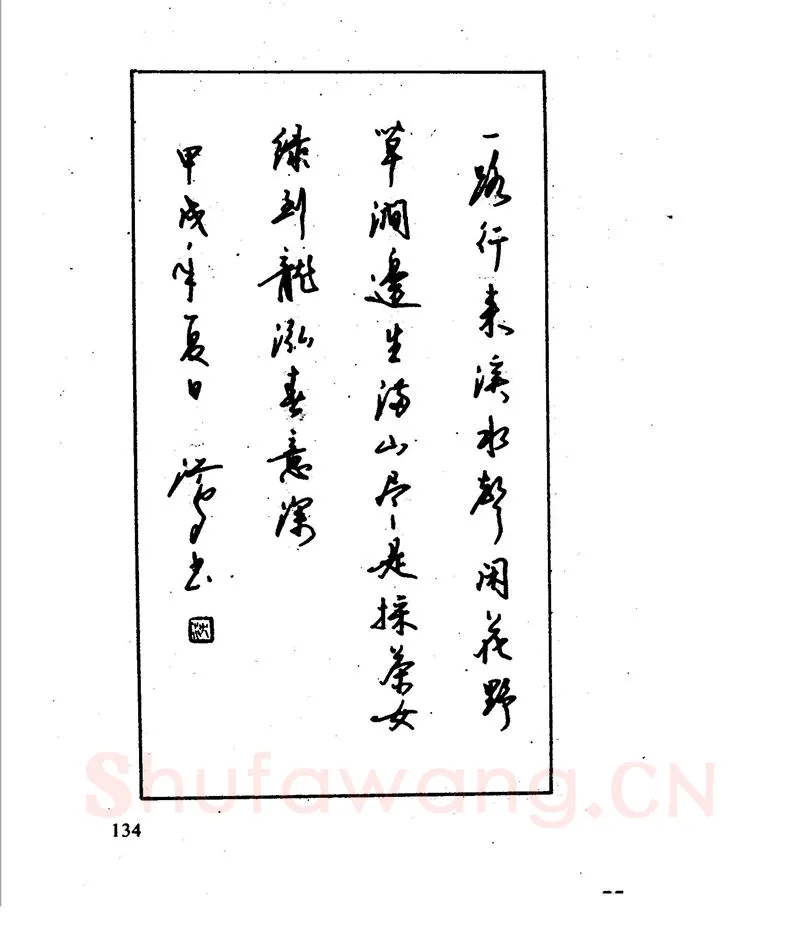 一路行来溪水聲闲花野
草澗邊生满山尽是採茶女
绿到龍泓春意深
甲戌年夏日 鸿书
沈
134
Shufawang.CN